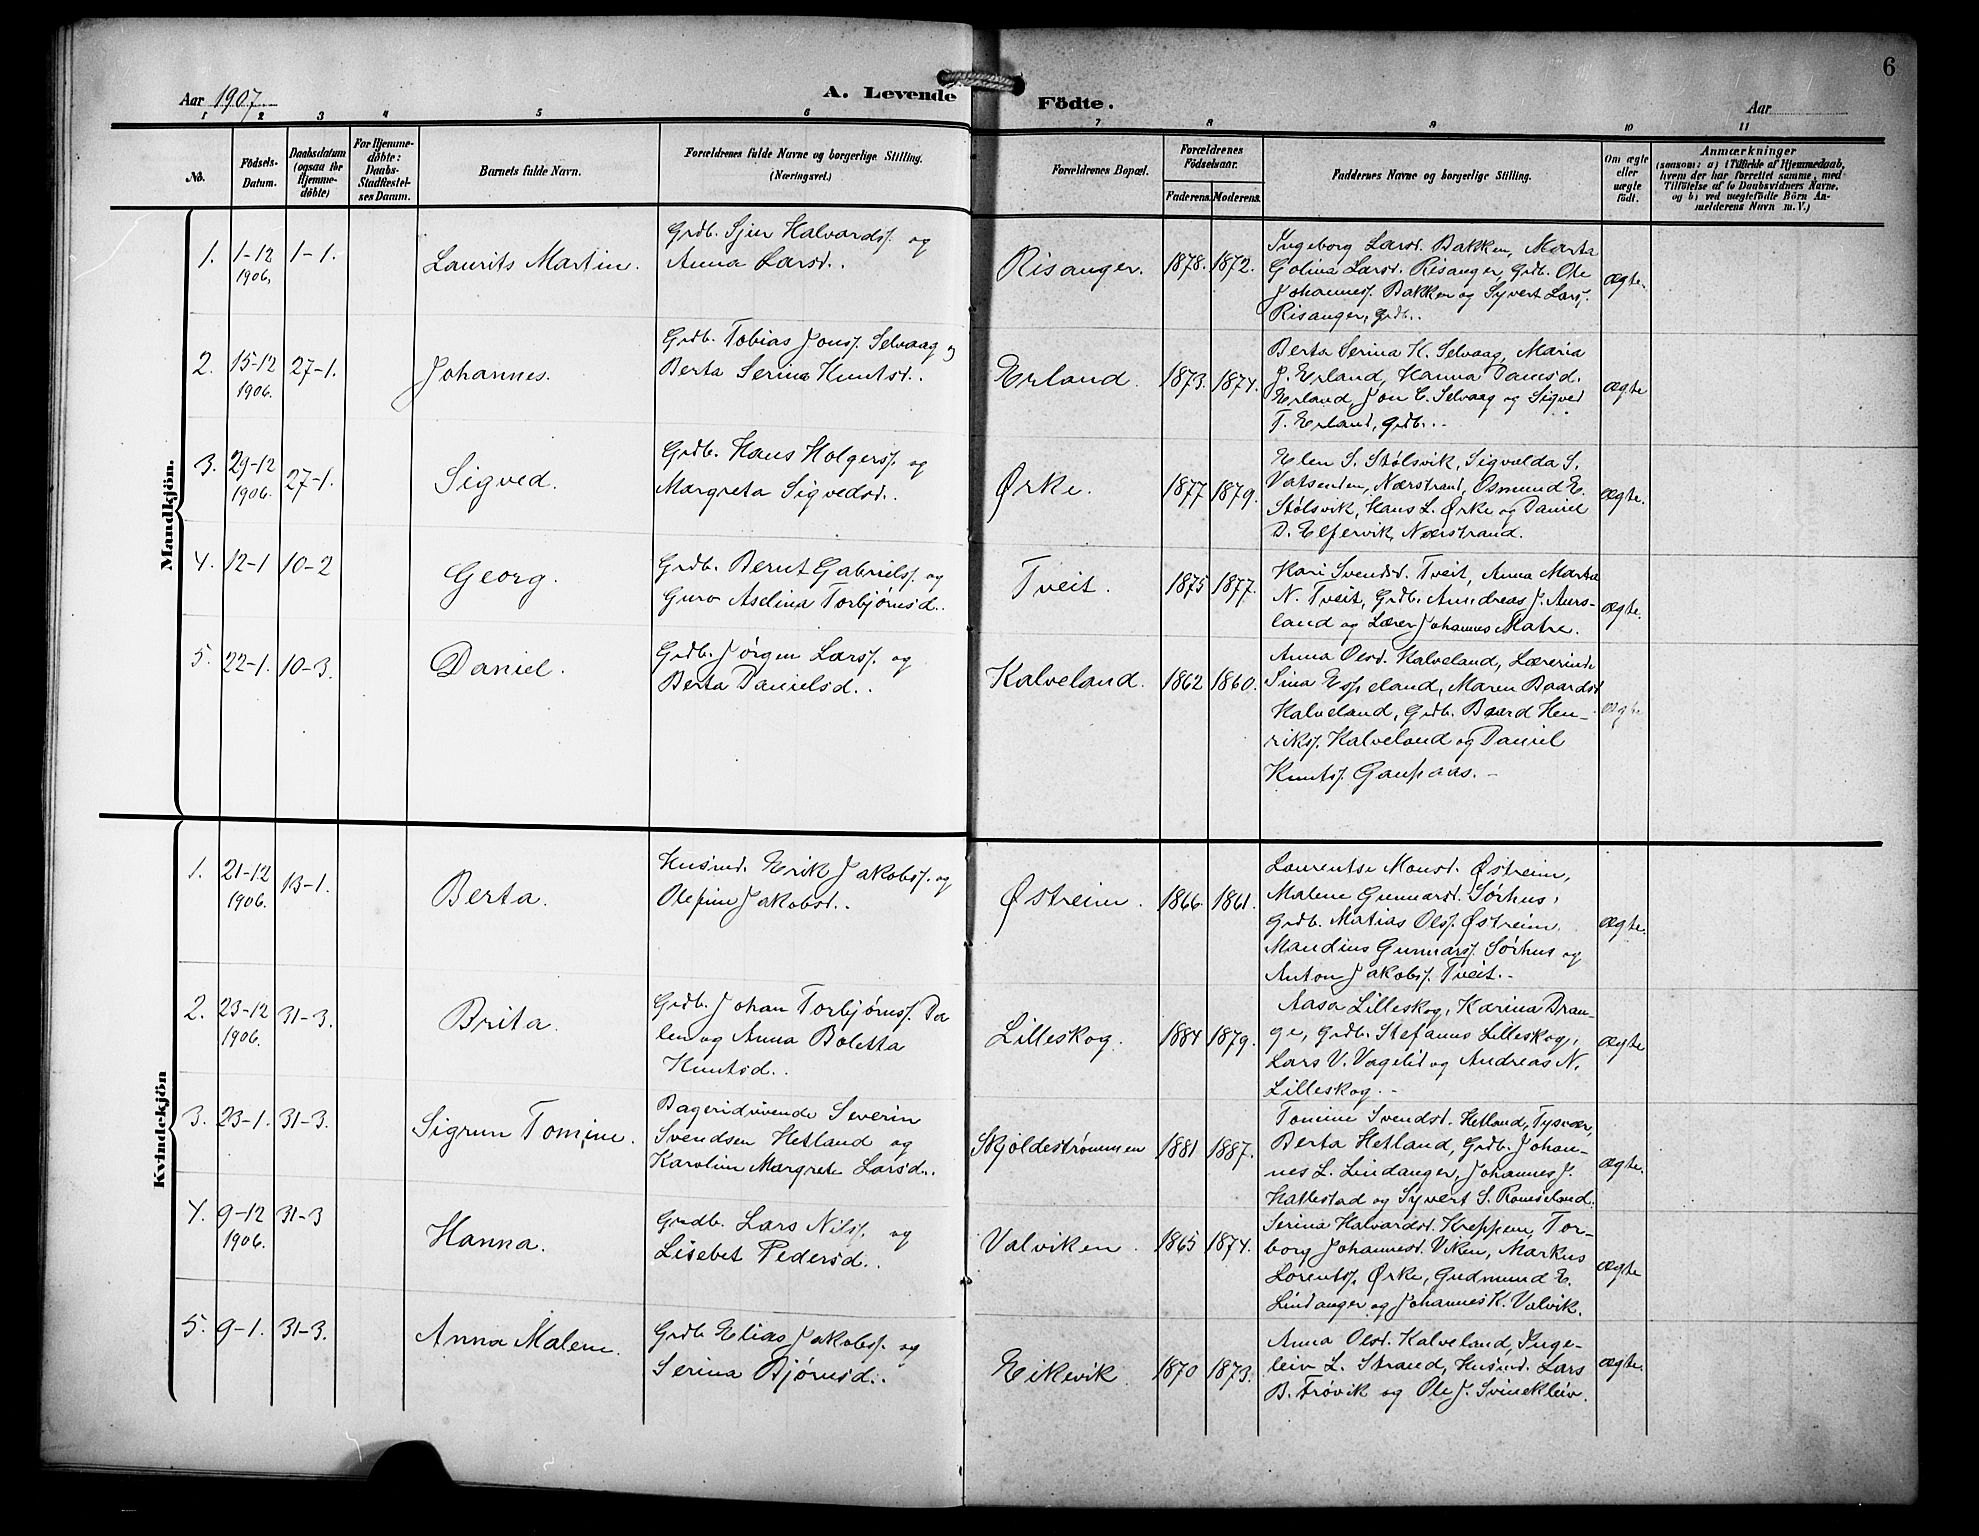 6
Aar 1907
A. Levende Födte.
Aar
1 2 3 4 5 6 7 8 9 10 11
No.
Födsels-Datum.
Daabsdatum (ogsaa for Hjemmedöbte)
For Hjemmedöbte: Daabs-Stadfæstelses Datum.
Barnets fulde Navn.
Forældrenes fulde Navne og borgerlige Stilling. (Næringsvei.)
Forældrenes Bopæl.
Forældrenes Födselsaar.
Faderens. Moderens.
Faddernes Navne og borgerlige Stilling.
Om ægte eller uægte födt.
Anmærkninger
(saasom: a) i Tilfælde af Hjemmedaab, hvem der har forrettet samme, med Tilföielse af to Daabsvidners Navne, og b) ved uægtefödte Börn Anmelderens Navn m. V.)
Mandkjön.
1. 1-12 1906. 1-1. Laurits Martin.
Grdb. Sjur Halvards. og
Anna Larsd..
Risanger. 1878. 1872.
Ingeborg Larsd. Bakken, Marta
Golina Larsd. Risanger, Grdb. Ole
Johannes. Bakken og Syvert Lars.
Risanger, Grdb..
ægte.
2. 15-12 1906. 27-1. Johannes.
Grdb. Tobias Jons. Selvaag og
Berta Serina Knutsd..
Erland. 1873. 1874.
Berta Serina K. Selvaag, Maria
J. Erland, Hanna Danisd.
Erland, Jon C. Selvaag og Sigved
T. Erland, Grdb..-
ægte
3. 29-12 1906. 27-1. Sigved.
Grdb. Hans Holgers. og
Margreta Sigvedsd..
Ørke. 1877 1879.
Elen S. Stølsvik, Sigvalda S.
Vatsenden, Nærstrand, Osmund E.
Stølsvik, Hans L. Ørke og Daniel
D. Elfervik, Nærstrand.
ægte.
4. 12-1 10-2 Georg.
Grdb. Bernt Gabriels. og
Guro Aselina Torbjørnsd..
Tveit. 1875 1877.
Kari Svendsd. Tveit, Anna Marta
N. Tveit, Grdb. Andreas J. Aurs-
land og Lærer Johannes Matre.
ægte.
5. 22-1. 10-3. Daniel.
Grdb. Jørgen Lars. og
Berta Danielsd..
Kalveland. 1862 1860.
Anna Olsd. Kalveland, Lærerinde
Sina Espeland, Maren Baardsd.
Kalveland, Grdb. Baard Hen-
riks. Kalveland og Daniel
Knuts. Gaupaas.-
ægte
Kvindekjön
1. 21-12 1906. 13-1. Berta.
Husmd. Erik Jakobs. og
Olefine Jakobsd..
Østreim. 1866 1861.
Laurentse Monsd. Østreim,
Malene Gunnarsd. Sørhus,
Grdb. Matias Ols. Østreim
Mandius Gunnars. Sørhus og
Anton Jakobs. Tveit.-
ægte.
2. 23-12 1906. 31-3. Brita.
Grdb. Johan Torbjørns. Da
len og Anna Boletta
Knutsd..
Lilleskog. 1884 1879.
Aasa Lilleskog, Karina Dran-
ge, Grdb. Stefanus Lilleskog,
Lars V. Vagelid og Andreas N.
Lilleskog.-
ægte
3. 23-1. 31-3. Sigrun Tomine.
Bageridrivende Severin
Svendsen Hetland og
Karoline Margrete Larsd..
Skjoldestrømmen 1881 1887.
Tomine Svendsd. Hetland, Tysvær,
Berta Hetland, Grdb. Johan-
nes L. Lindanger, Johannes J.
Hatlestad og Syvert S. Romseland.
ægte.
4. 9-12 1906. 31-3 Hanna.
Grdb. Lars Nils. og
Lisebet Pedersd..
Valviken. 1865 1874.
Serina Halvardsd. Kreppen, Tor-
borg Johannesd. Viken, Markus
Lorents. Ørke, Gudmund E.
Lindanger og Johannes K. Valvik.
ægte
5. 9-1. 31-3. Anna Malene.
Grdb Elias Jakobs. og
Serina Bjørnsd..
Eikevik. 1870 1873.
Anna Olsd. Kalveland, Inge-
leiv L. Strand, Husmd. Lars
B. Frøvik og Ole J. Svinekleiv.
ægte.